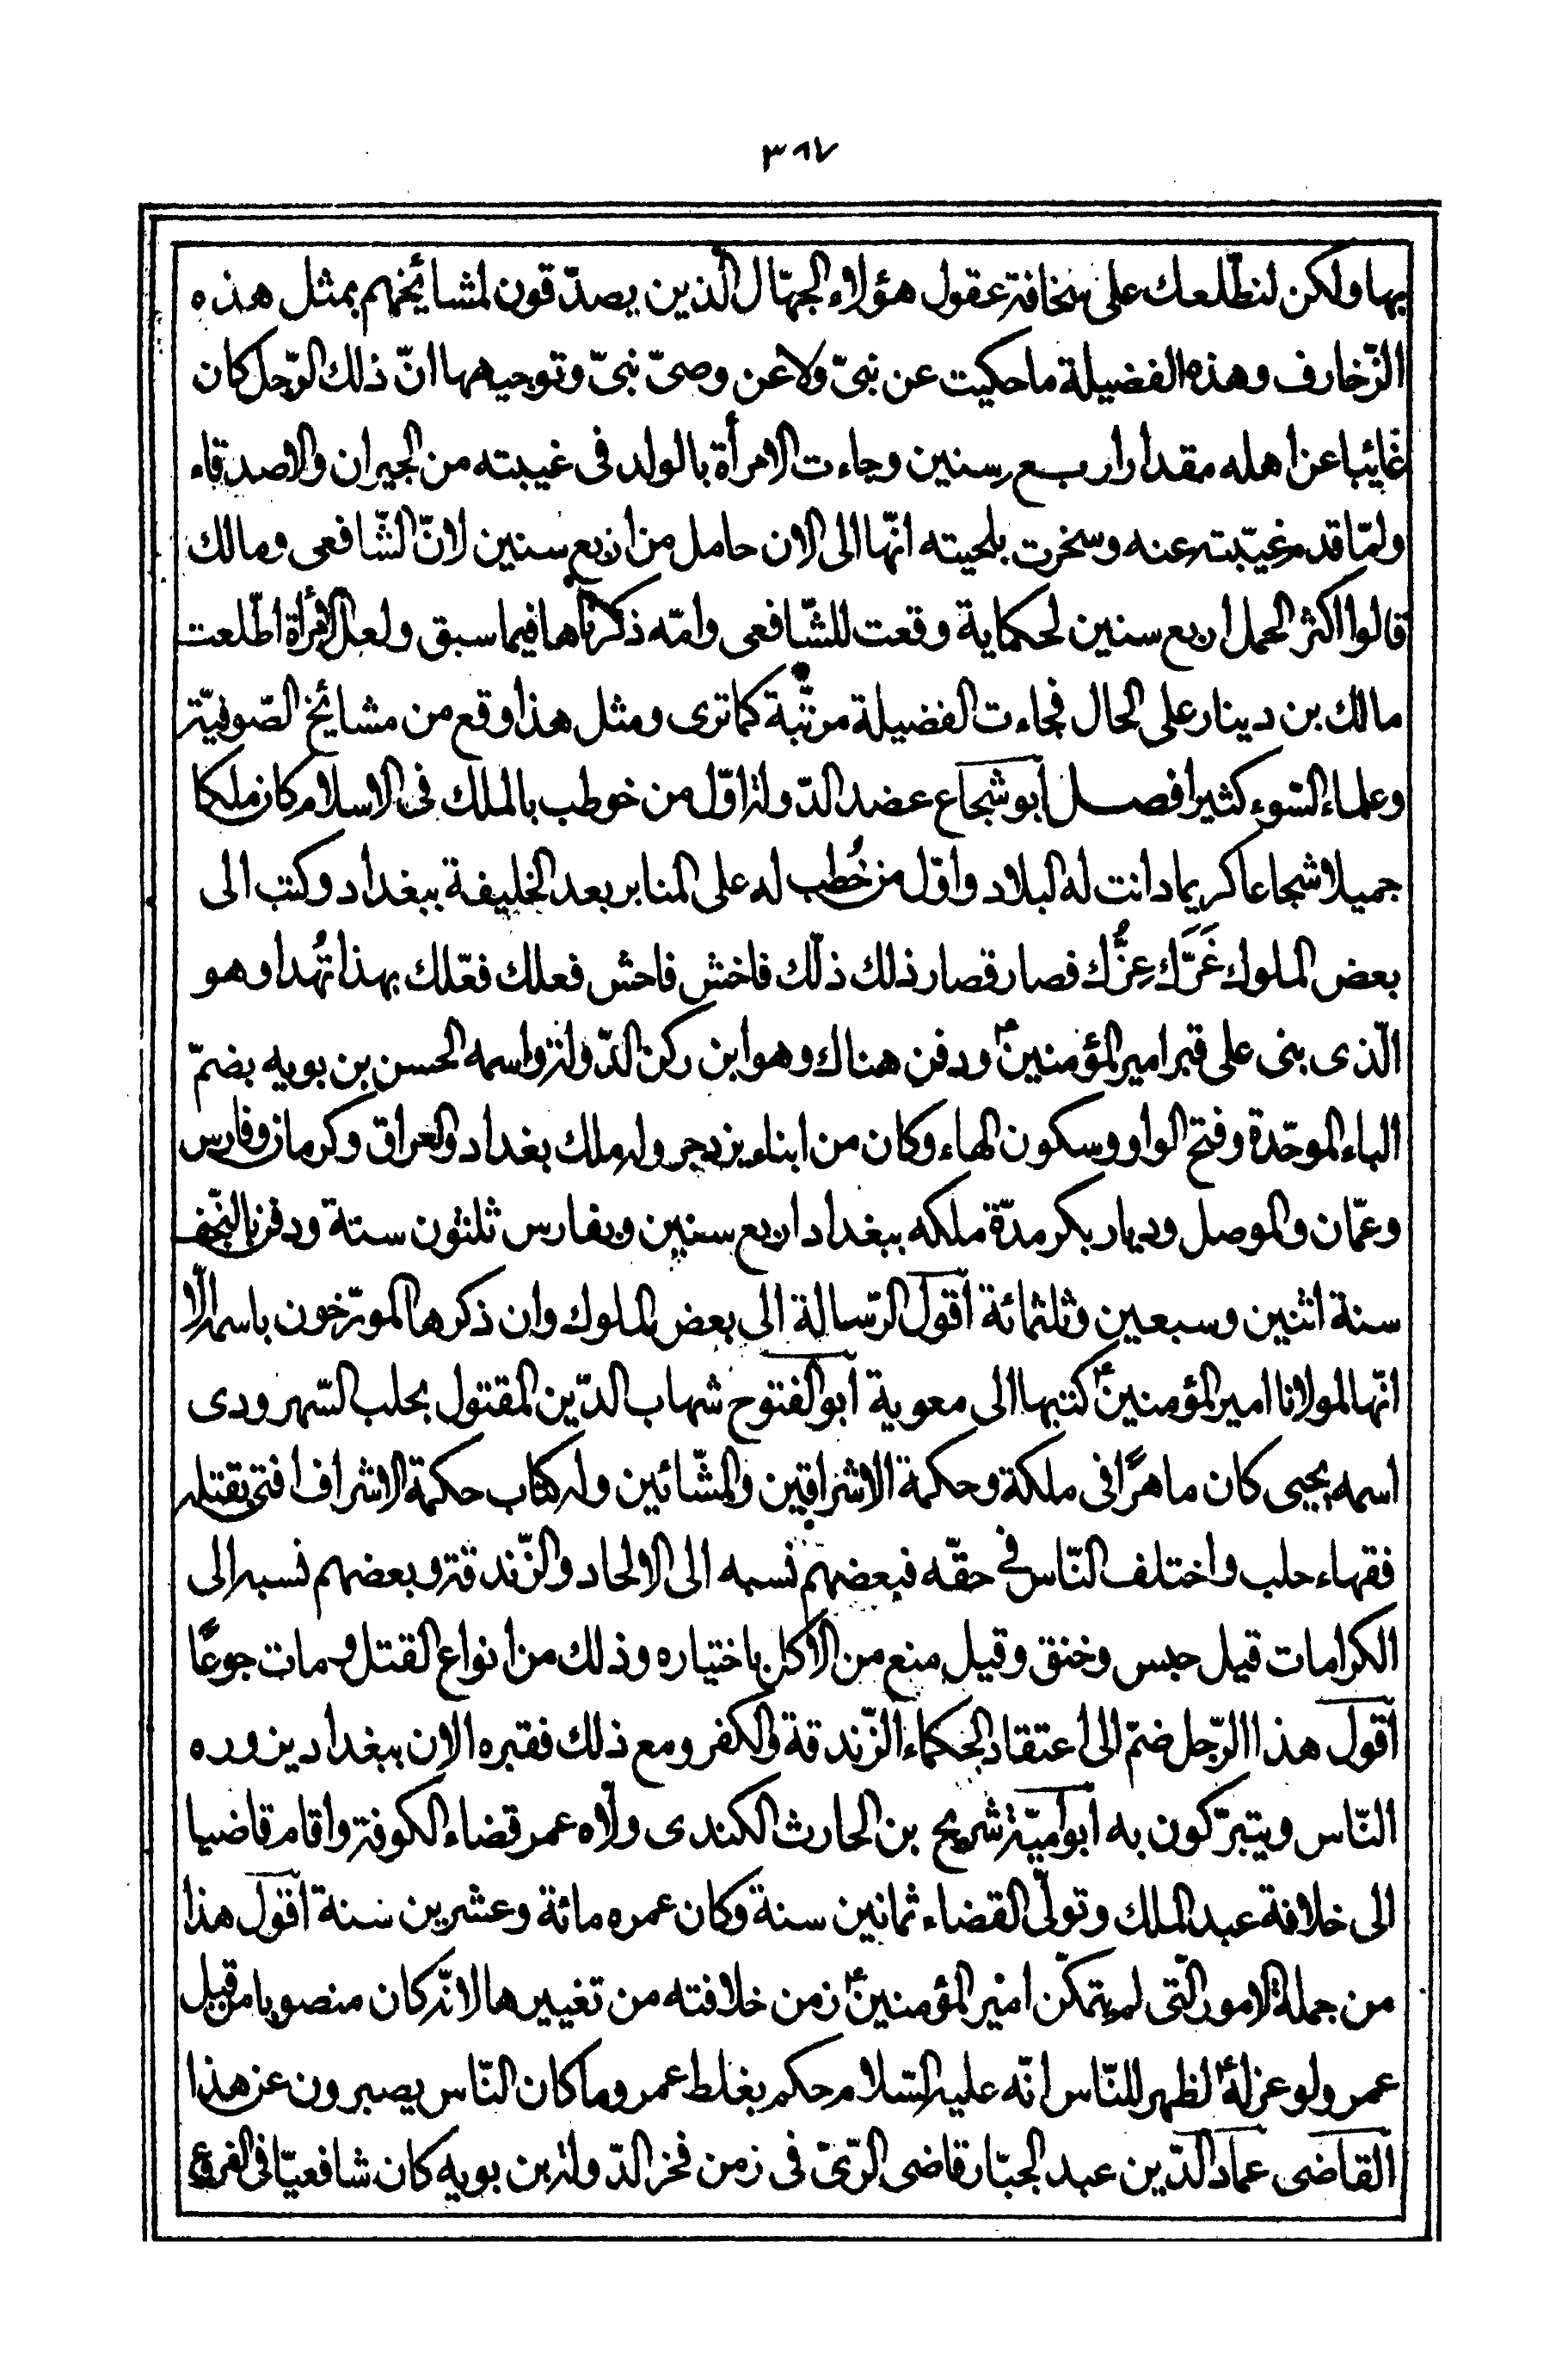 ٣٨٧
بها ولكن لنطّلعك على سخافة عقول هؤلاء الجهّال الّذين يصدّقون لمشائخهم بمثل هذه
الزّخارف وهذه الفضيلة ما حكيت عن نبىّ ولا عن وصىّ نبىّ وتوجيهها انّ ذلك الرّجل كان
غائبا عن اهله مقدار اربع سنين وجاءت الامرأة بالولد فى غيبته من الجيران والاصدقاء
ولمّا قدم غيّبته عنه وسخرت بلحيته انّها الى الان حامل من اربع سنين لانّ الشّافعى ومالك
قالوا اكثر الحمل اربع سنين لحكاية وقعت للشّافعى وامّه ذكرناها فيما سبق ولعل الامرأة اطّلعت
مالك بن دينار على الحال فجاءت الفضيلة مرتّبة كما ترى ومثل هذا وقع من مشائخ الصّوفيّة
وعلماء السّوء كثيرا فصل أبو شجاع عضد الدّولة اوّل من خوطب بالملك فى الاسلام كان ملكا
جميلا شجاعا كريما دانت له البلاد واوّل من خُطب له على المنابر بعد الخليفة ببغداد وكتب الى
بعض الملوك غَرَّك عِزُّك فصار قصار ذلك ذلّك فاخش فاحش فعلك فعّلك بهذا تُهدا وهو
الّذى بنى على قبر امير المؤمنينؑ ودفن هناك وهو ابن ركن الدّولة واسمه الحسن بن بويه بضمّ
الباء الموحّدة وفتح الواو وسكون الهاء وكان من ابناء يزدجر وله ملك بغداد والعراق وكرمان وفارس
وعمّان والموصل وديار بكر مدّة ملكه ببغداد اربع سنين وبفارس ثلثون ستة ودفن بالنّجف
سنة اثنين وسبعين وثلثمائة أقول الرّسالة الى بعض الملوك وان ذكرها المورّخون باسمه الّا
انّها لمولانا امير المؤمنينؑ كتبها الى معوية أبو الفتوح شهاب الدّين المقتول بحلب السّهرودى
اسمه يحيى كان ماهرًا فى ملكة وحكمة الاشراقين والمشّائين وله كتاب حكمة الاشراف افتى بقتله
فقهاء حلب واختلف النّاس فى حقّه فبعضهم نسبه الى الالحاد والزّندقة وبعضهم نسبه الى
الكرامات قيل حبس وخنق وقيل منع من الاكل باختياره وذلك من انواع القتل ومات جوعًا
أقول هذا الرّجل ضمّ الى اعتقاد الحكماء الزّندقة والكفر ومع ذلك فقبره الان ببغداد يزوره
النّاس ويتبرّكون به أبو اميّة شريح بن الحارث الكندى ولّاه عمر قضاء الكوفة واقام قاضيا
الى خلافة عبد الملك وتولّى القضاء ثمانين سنة وكان عمره مائة وعشرين سنة أقول هذا
من جملة الامور الّتى لم يتمكّن امير المؤمنينؑ زمن خلافته من تغييرها لانّه كان منصوبا من قبل
عمر ولو عزلهؑ لظهر للنّاس انّه عليه السّلام حكم بغلط عمر وما كان النّاس يصبرون عن هذا
القاضى عماد الدّين عبد الجبّار قاضى الرّىّ فى زمن فخر الدّولة بن بويه كان شافعيّا فى الفروع